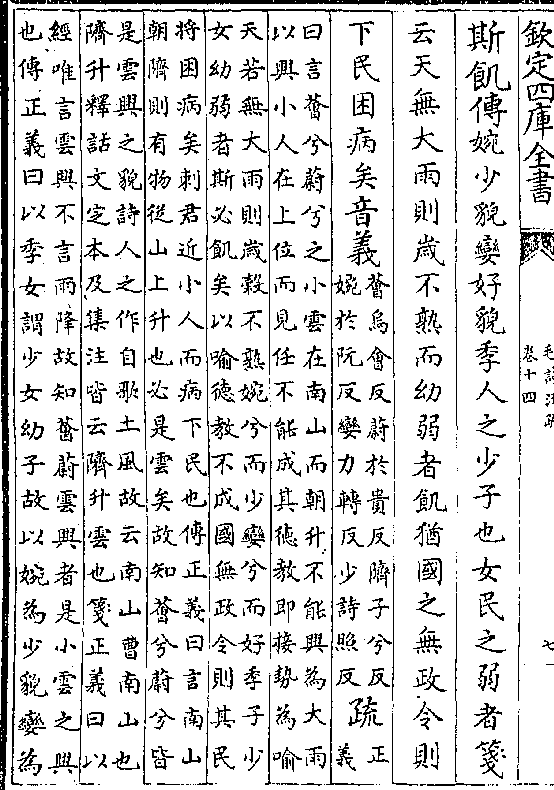 欽定四庫全書
毛詩注疏
卷十四
七
斯飢傳婉少貌孌好貌季人之少子也女民之弱者箋
云天無大雨則歲不熟而幼弱者飢猶國之無政令則
下民困病矣音義
薈烏會反蔚於貴反隮子兮反
婉於阮反孌力轉反少詩照反
疏
正
義
曰言薈兮蔚兮之小雲在南山而朝升不能興為大雨
以興小人在上位而見任不能成其德教即接勢為喻
天若無大雨則歲穀不熟婉兮而少孌兮而好季子少
女幼弱者斯必飢矣以喻德教不成國無政令則其民
將困病矣刺君近小人而病下民也傳正義曰言南山
朝隮則有物從山上升也必是雲矣故知薈兮蔚兮皆
是雲興之貌詩人之作自歌土風故云南山曹南山也
隮升釋詁文定本及集注皆云隮升雲也箋正義曰以
經唯言雲興不言雨降故知薈蔚雲興者是小雲之興
也傳正義曰以季女謂少女幼子故以婉為少貌孌為